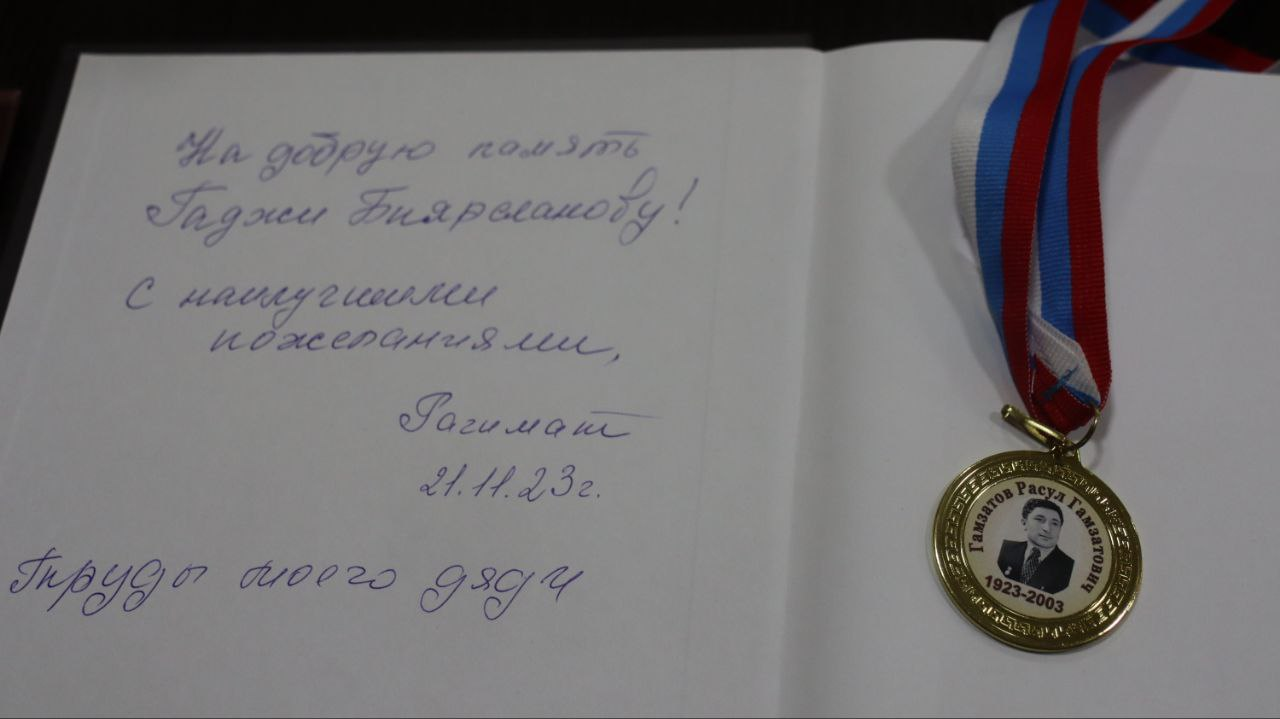 На добрую память
Гаджи Биярсланову!
С наилучшими
пожеланиями,
Рагимат
21.11.23г.
Труды моего дяди
Гамзатов Расул Гамзатович
1923-2003